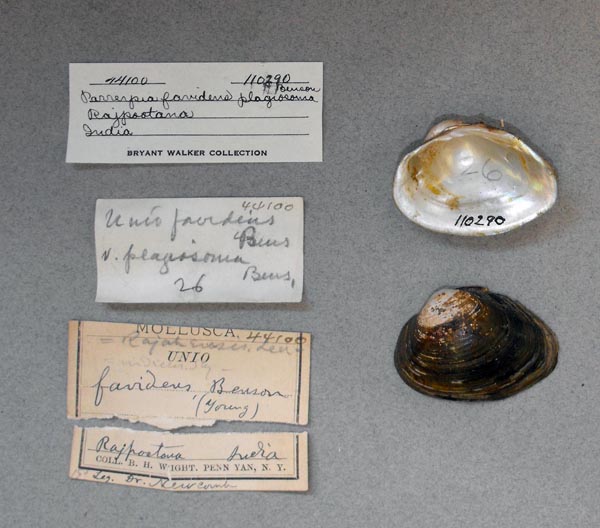 44100 110290
Parreysia favidens plagiosoma Benson
Rajpootana
India
BRYANT WALKER COLLECTION
44100
Unio favidens
Bens
v. plagiosoma
Bens,
26
MOLLUSCA. 44100
UNIO
favidens Benson
(Young)
Rajpootana India
COLL. B. H. WRIGHT. PENN YAN, N. Y.
Leg. Dr. Newcomb
26
110290